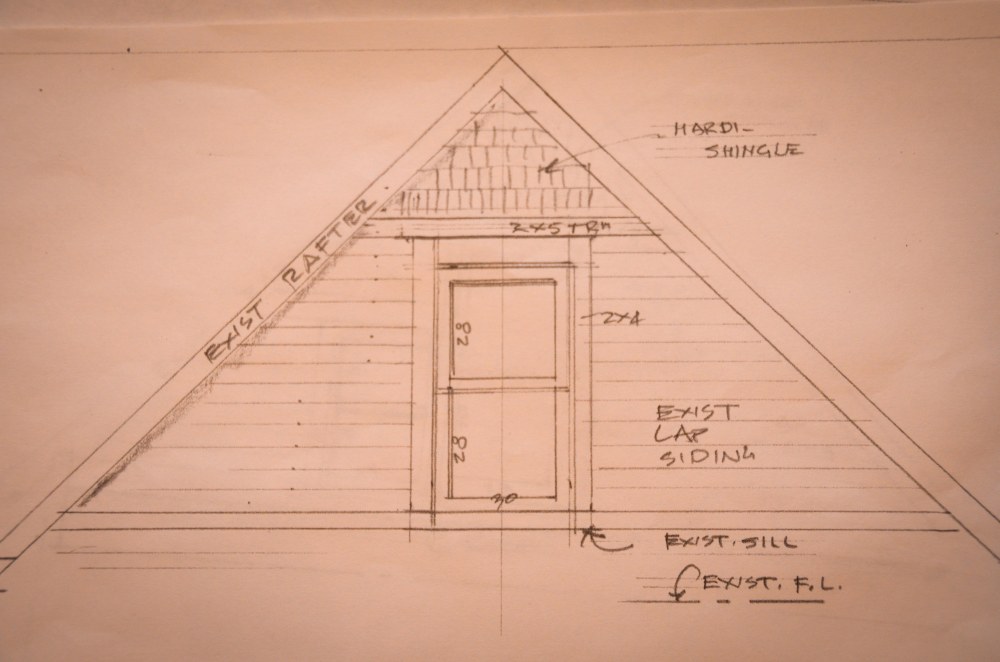 HARDI-
SHINGLE
EXIST RAFTER
2x5 TRM
28
2x4
EXIST
LAP
SIDING
28
30
EXIST. SILL
EXIST. F.L.